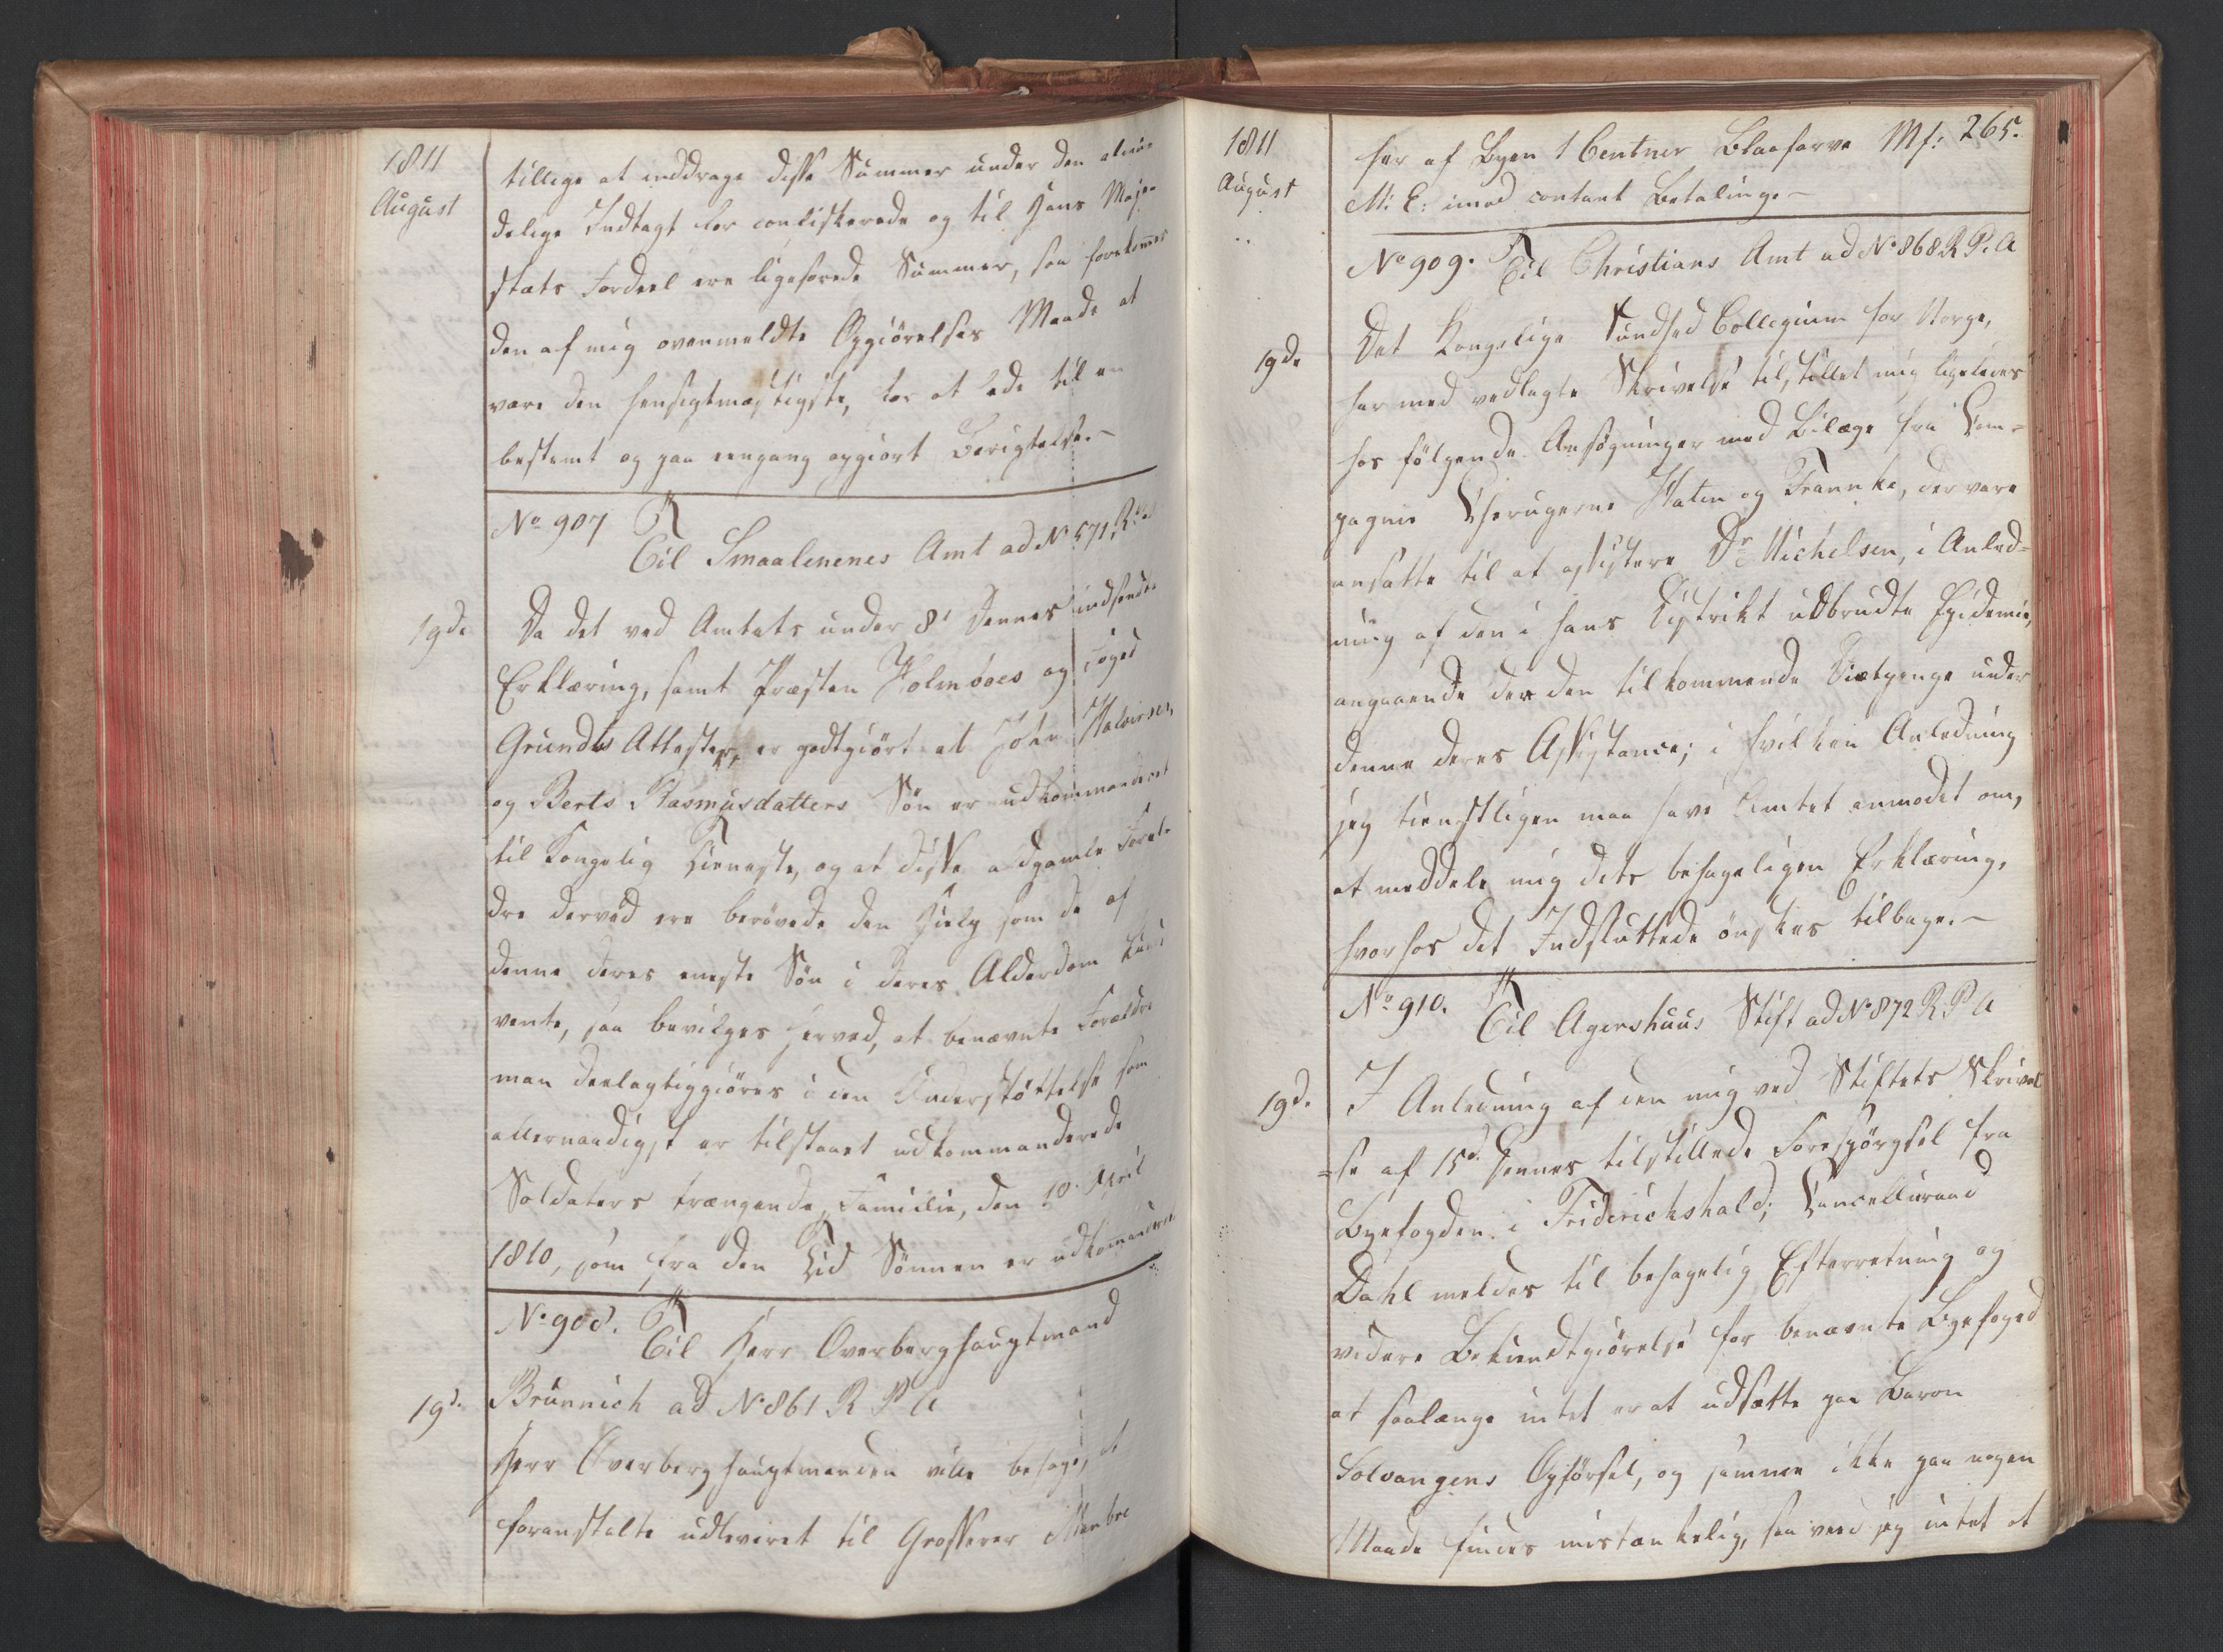 1811
August
tillige at inddrage disse Summer under den almin-
delige Indtægt for confiskerede og til Hans Maje-
stæts Fordeel ere ligeførede Summer, saa forekommer
den af mig ovenmeldte Opgiörelses Maade at
være den hensigtmæssigste, for at lede til en
bestemt og paa eengang opgiort Berigtelse.-
No 907 Til Smaalenenes Amt ad No 571 R P A
19de Da det ved Amtets under 8' Dennes indsendte
Erklæring, samt Præsten Holmboes og Foged
Grundts Attester, er godtgiört at John Halvorsen
og Berts Rasmusdatters Sön er udkommanderet
til Kongelig Tieneste, og at disse aldgamle Foræl-
dre derved ere berövede den Hielp som de af
denne deres eneste Sön i deres Alderdom kund
vente, saa bevilges herved, at benævnte Forældre
maa deelagtiggiöres i den Understöttelse som
allernaadigst er tilstaaet udkommanderede
Soldaters trængende Familie, den 10 April
1810, som fra den Tid Sönnen er udkommanderet
No 908. Til Herr Overberghauptmand
19d. Brünnich ad No 861 R P A
Herr Overberghauptmanden ville behage, at
foranstalte udleveret til Grosserer
265.
1811
August
her af Byen 1 Centner Blaafarve Mf:
M: E: imod contant Betaling.-
No 909. Til Christians Amt ad No 868 R P. A
19de Det Kongelige Sundhed Collegium for Norge,
har med vedlagte Skrivelse tilstillet mig ligeledes
hos fölgende Ansögninger med Bilage fra Com-
pagnie Chirugerne Statin og Frannke, der vare
ansatte til at assistere Dr Michelsen, i Anled-
ning af den i hans Distrikt udbrudte Epidemie,
angaaende der den tilkommende Diætpenge under
denne deres Assistance; i hvilken Anledning
jeg tienstligen maa have Amtet anmodet om,
at meddele mig dets behageligen Erklæring,
hvorhos det Indsluttede önskes tilbage.-
No 910. Til Agershuus Stift ad No 872 R. P A
19d. I Anledning af den mig ved Stiftets Skrivel
=se af 15d. hennes tilstillede Forespörgsel fra
Byefogden i Friderichshald, Cancelliraad
Dahl meldes til behagelig Efterretning og
videre Bekiendtgiörelse for benævnte Byefoged
at saalænge intet er at udsætte paa Baron
Solvangens Opförsel, og samme ikke paa nogen
Maade findes mistænkelig, saa veed jeg intet at